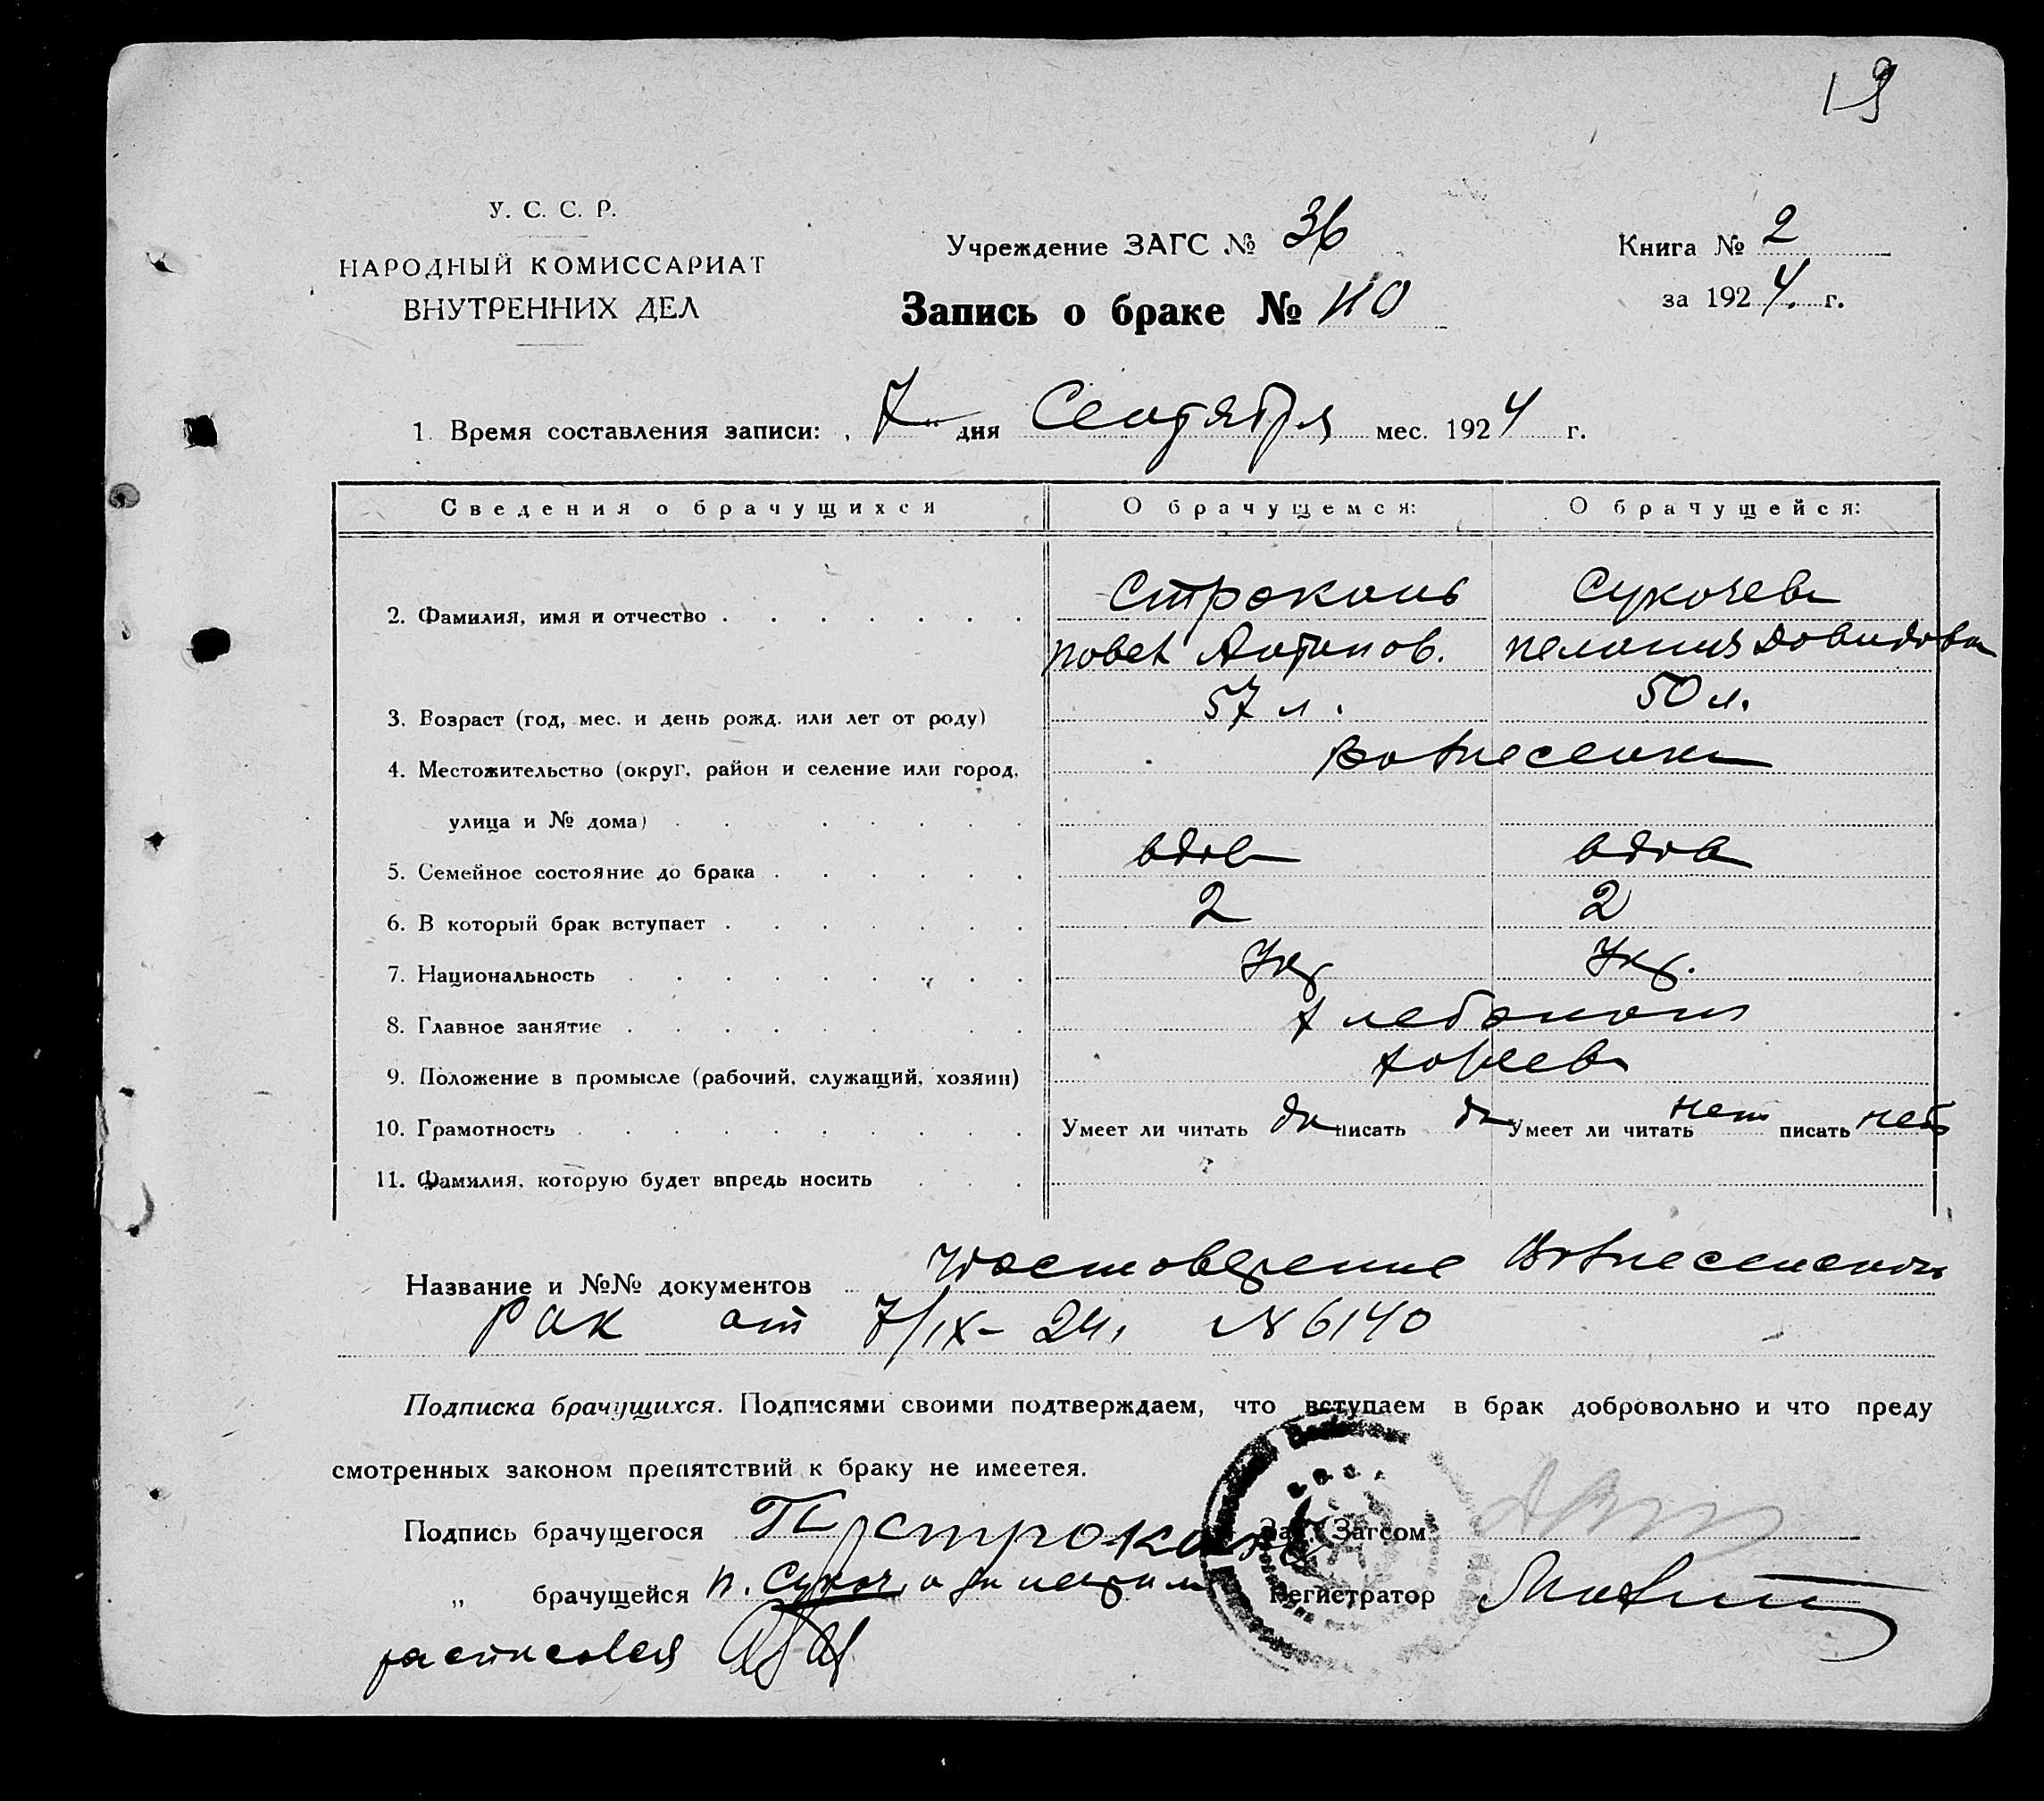 19
У. С. С. Р.
НАРОДНЫЙ КОМИССАРИАТ
ВНУТРЕННИХ ДЕЛ
Учреждение ЗАГС № 36
Запись о браке № 110
Книга № 2
за 1924 г.
1. Время составления записи: 7 дня Сентября мес. 1924 г.
Сведения о брачущихся О брачущемся: О брачущейся:
Строкань Сукочева
2. Фамилия, имя и отчество
Антонов. Давидовна
3. Возраст (год, мес. и день рожд. или лет от роду) 57 л. 50 л.
4. Местожительство (округ, район и селение или город, Вознесенка
улица и № дома)
5. Семейное состояние до брака вдов вдов
6. В который брак вступает 2 2
7. Национальность Укр Укр.
8. Главное занятие
9. Положение в промысле (рабочий, служащий, хозяин)
10. Грамотность Умеет ли читать да писать да Умеет ли читать нет писать нет
11. Фамилия, которую будет впредь носить
Название и №№ документов Удостоверение Вознесенского
РИК от 7/IX-24. № 6140
Подписка брачущихся. Подписями своими подтверждаем, что вступаем в брак добровольно и что преду
смотренных законом препятствий к браку не имеетея.
Подпись брачущегося П Строкань Зав. Загсом
„ брачущейся п. Сукоч. а за неграм
Регистратор
расписался